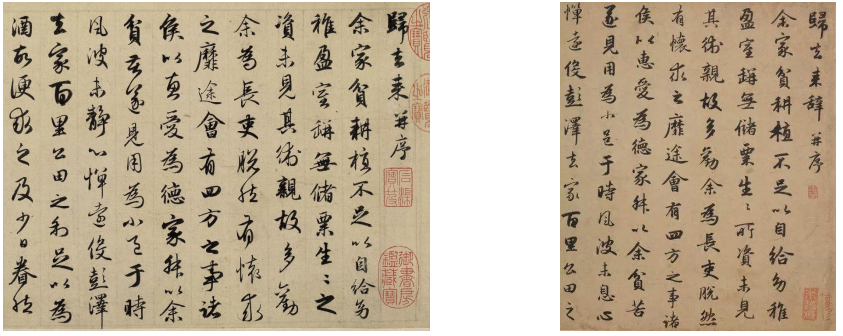 歸去來并序
余家貧耕植不足以自給幼
稚盈室缾無儲粟生〻之
資未見其術親故多勸
余為長吏脫然有懷求
之靡途會有四方之事諸
侯以惠愛為德家叔以余
貧苦遂見用為小邑于時
風波未靜心憚遠役彭澤
去家百里公田之利足以為
酒故便求之及少日眷然
石渠寶笈
御書房鑑藏寶
歸去來辭并序
余家貧耕植不足以自給幼稚
盈室缾無儲粟生〻所資未見
其術親故多勸余為長吏脫然
有懷求之靡途會有四方之事諸
侯以惠愛為德家叔以余貧苦
遂見用為小邑于時風波未息心
憚遠役彭澤去家百里公田之